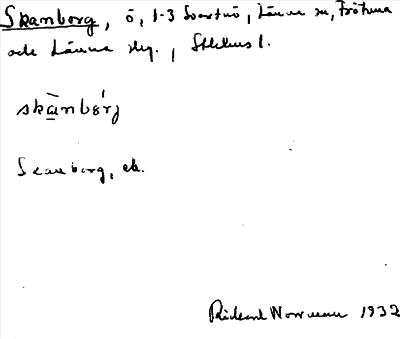 Skanborg, ö, 1-3 Svartnö, Länna sn, Frötuna
och Länna skg., Sthlms l.
skànbórj
Skanborg, ek.
Rickard Norrman 1932